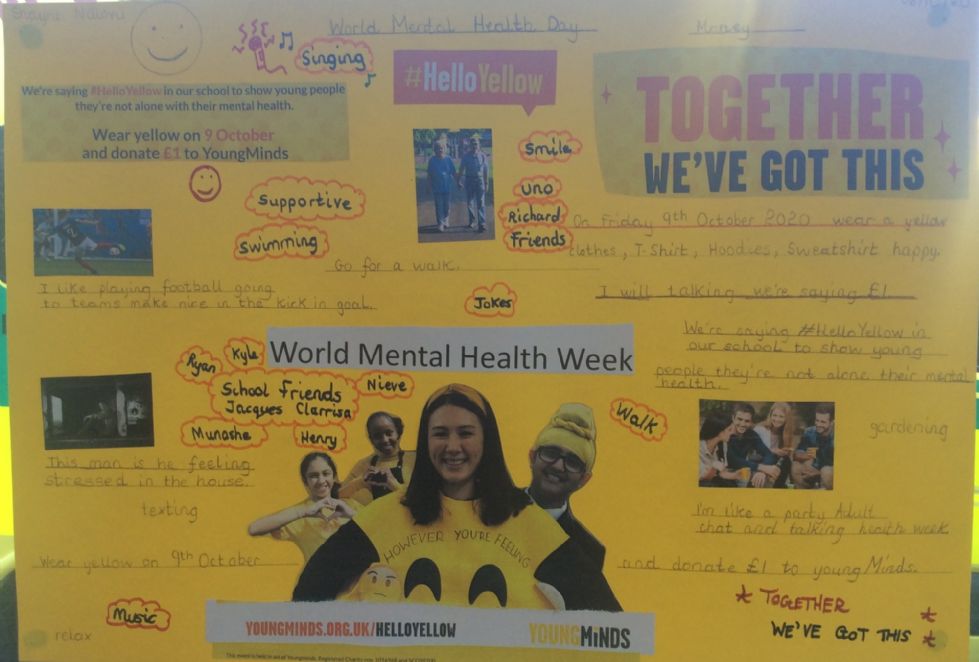 World Mental Health Day
Money
Singing
#HelloYellow
We're saying #HelloYellow in our school to show young people
they're not alone with their mental health.
Wear yellow on 9 October
and donate £1 to YoungMinds
TOGETHER
WE'VE GOT THIS
Smile
Supportive
Swimming
UNO
Richard
Friends
On Friday 9th October 2020 wear a yellow
clothes, T-Shirt, Hoodies, Sweatshirt happy.
Go for a walk.
I like playing football going
to teams make nice in the kick in goal.
Jokes
I will talking we're saying £1
We're saying #HelloYellow in
our school to show young
people they're not alone their mental
health.
World Mental Health Week
Ryan
Kyle
School Friends
Jacques Clarrisa
Nieve
Munashe
Henry
Walk
gardening
This man is he feeling
stressed in the house.
texting
I'm like a party Adult
chat and talking health week
HOWEVER YOU'RE FEELING
Wear yellow on 9th October
and donate £1 to young Minds.
Music
relax
YOUNGMINDS.ORG.UK/HELLOYELLOW
YOUNGMINDS
TOGETHER
WE'VE GOT THIS